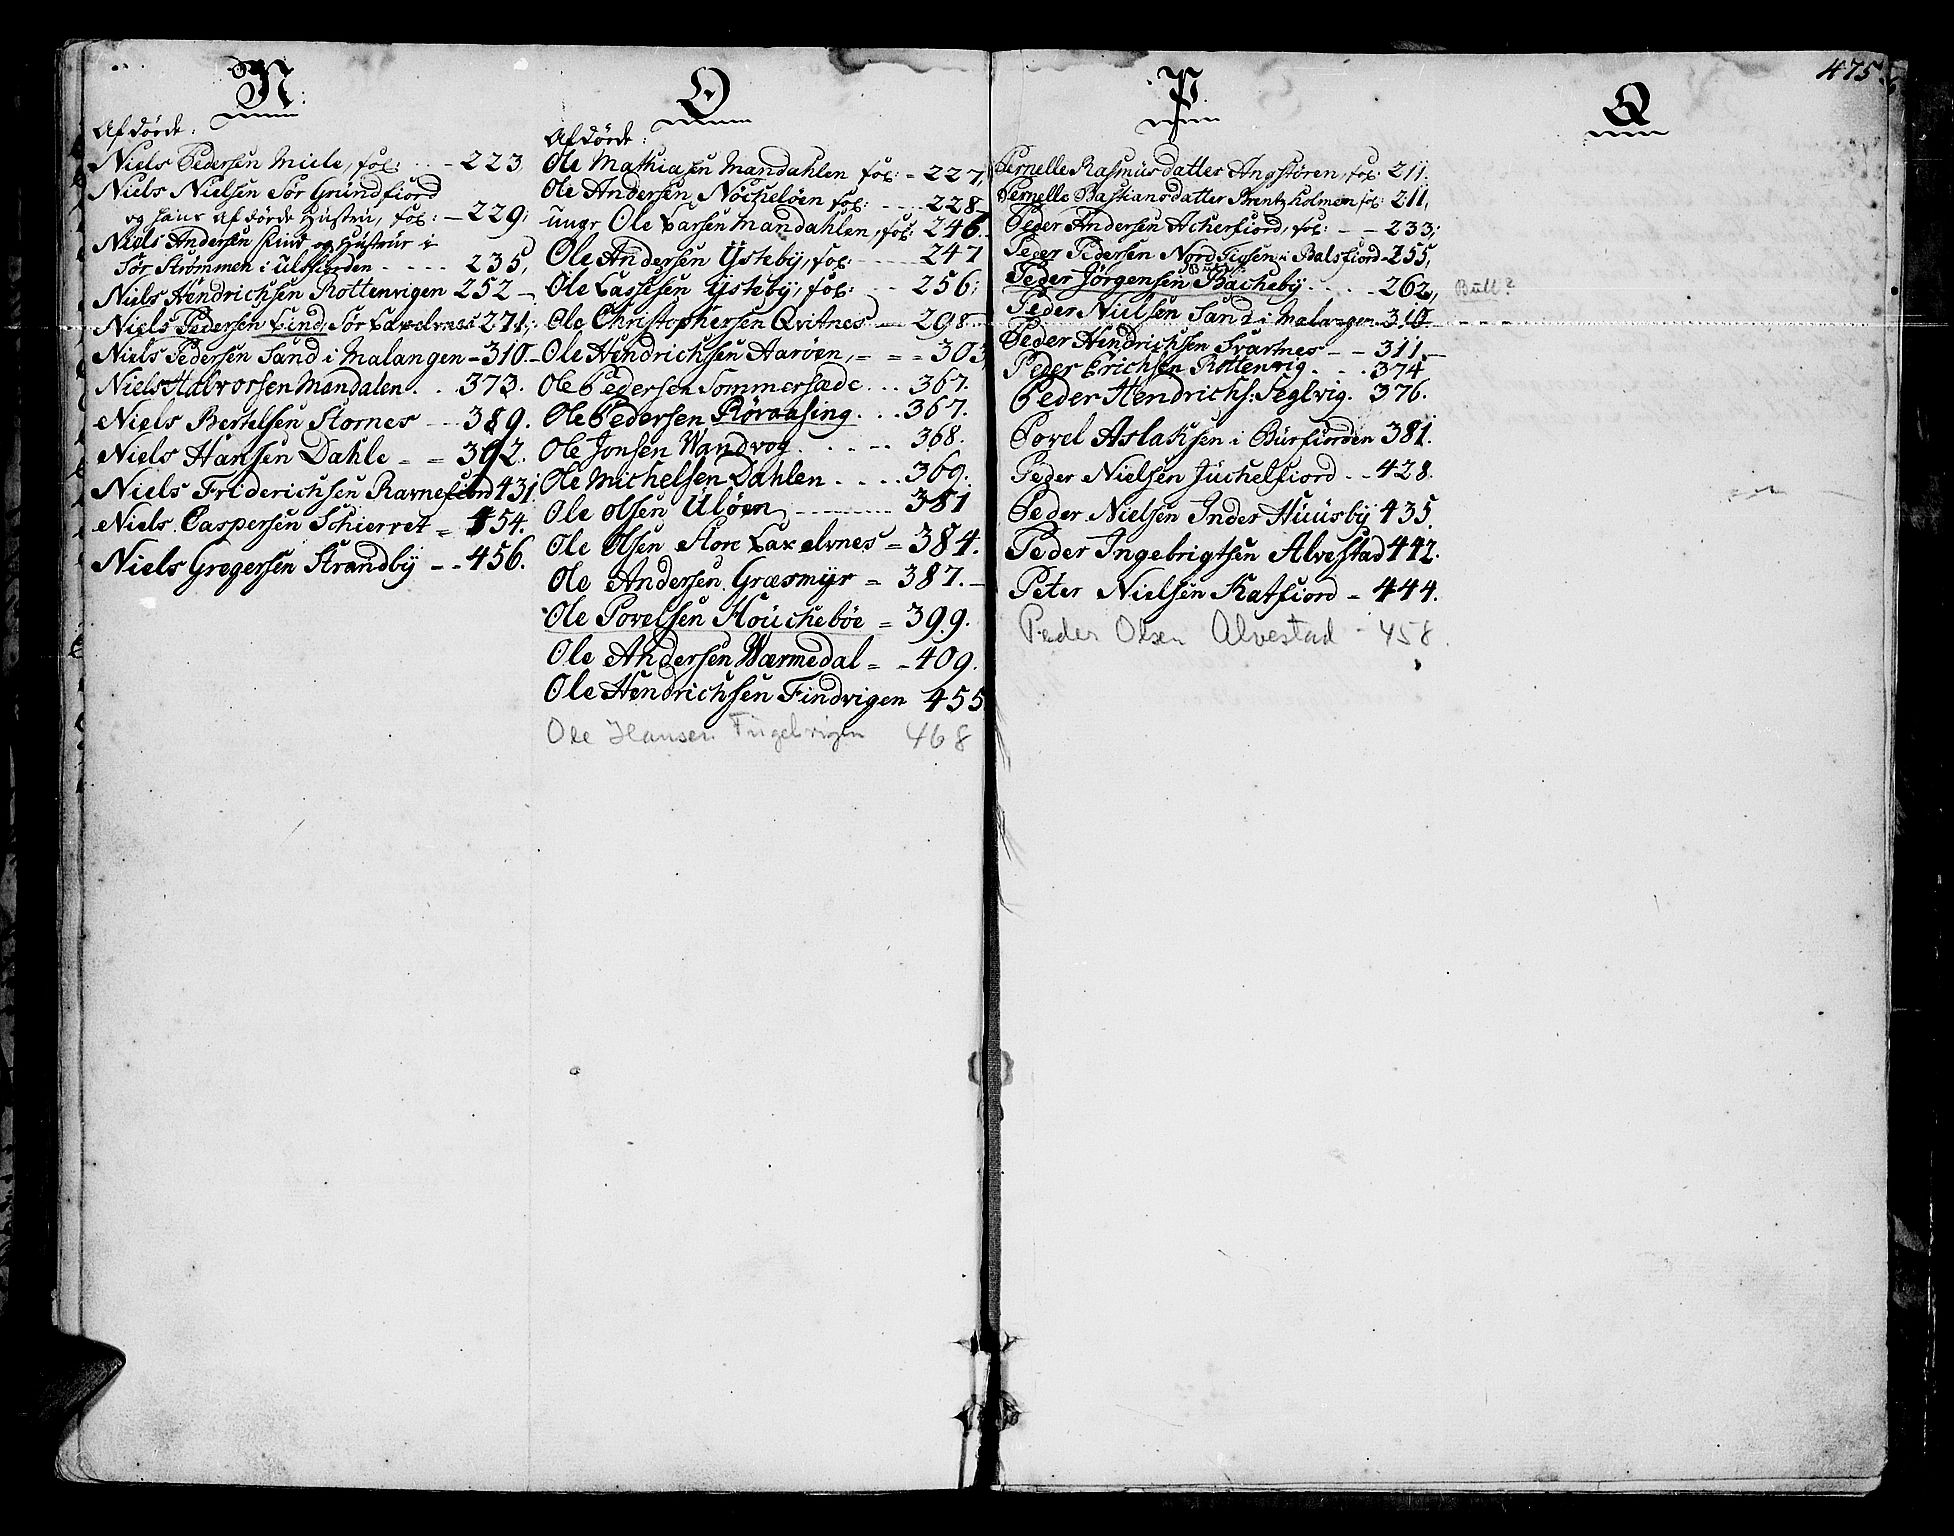 N:
Afdøde:
Niels Pedersen Miele, fol: - - 223,
Niels Nielsen Sør Grundfiord
og hans afdøde Hustru, fol: - 229;
Niels Andersen Find og Hustrue i
Sør Strømmen i Ulsfiorden - - - - 235,
Niels Hendrichsen Rottenvigen 252 -
Niels Pedersen Find, Sør Laxelvnes 271;
Niels Pedersen Sand i Malangen - 310. -
Niels Halvorsen Mandalen . . 373.
Niels Bertelsen Stornes - - - 389.
Niels Hansen Dahle = = 392.
Niels Friderichsen Ravnefiord 431
Niels Caspersen Schierret = 454.
Niels Gregersen Strandby - - 456.
O
Afdøde:
Ole Mathiasen Mandahlen fol: - 227,
Ole Andersen Nøcheløen fol: - - - 228 -
ungr Ole Larsen Mandahlen, fol. 246. -
Ole Andersen Ysteby, fol - - - 247
Ole Lassesen Ysteby, fol: - - 256;
Ole Christophersen Qvitnes - - 298.
Ole Hendrichsen Aarøen, = = = 303
Ole Pedersen Sommersæde . . . 367.
Ole Pedersen Rørvaasing . . . 367.
Ole Jonsen Vandvog . . . . . . 368.
Ole Michelsen Dahlen . . . . . 369.
Ole Olsen Uløen - - - - - - - 381
Ole Olsen Store Laxelvnes = 384.
Ole Andersen Græsmyr = 387. -
Ole Povelsen Houchebøe = 399.
Ole Andersen Wærmedal = - 409.
Ole Hendrichsen Findvigen 455
Ole Hansen Fugelvigen 468
P.
475.
Pernelle Rasmusdatter Angstøren, fol: 211.
Pernelle Bastiansdatter Brentzholmen fol: 211,
Peder Andersen Acherfiord, fol: - - 233;
Peder Pedersen Nord i Balsfiord - 255,
Bull
Peder Jørgensen Bacheby . . . . - 262, Bull?
Peder Nielsen Sand i Malangen - 310 -
Peder Hendrichsen Svartnes - - 311. -
Peder Erichsen Rottenvig . . . 374
Peder Hendrichs: Seglvig. 376.
Povel Aslaksen i Burfiorden 381.
Peder Nielsen Juchelfiord - - 428.
Peder Nielsen Inder Huusby 435.
Peder Ingebrigtsen Alvestad 442.
Peter Nielsen Katfiord - 444.
Peder Olsen Alvestad - 458.
Q